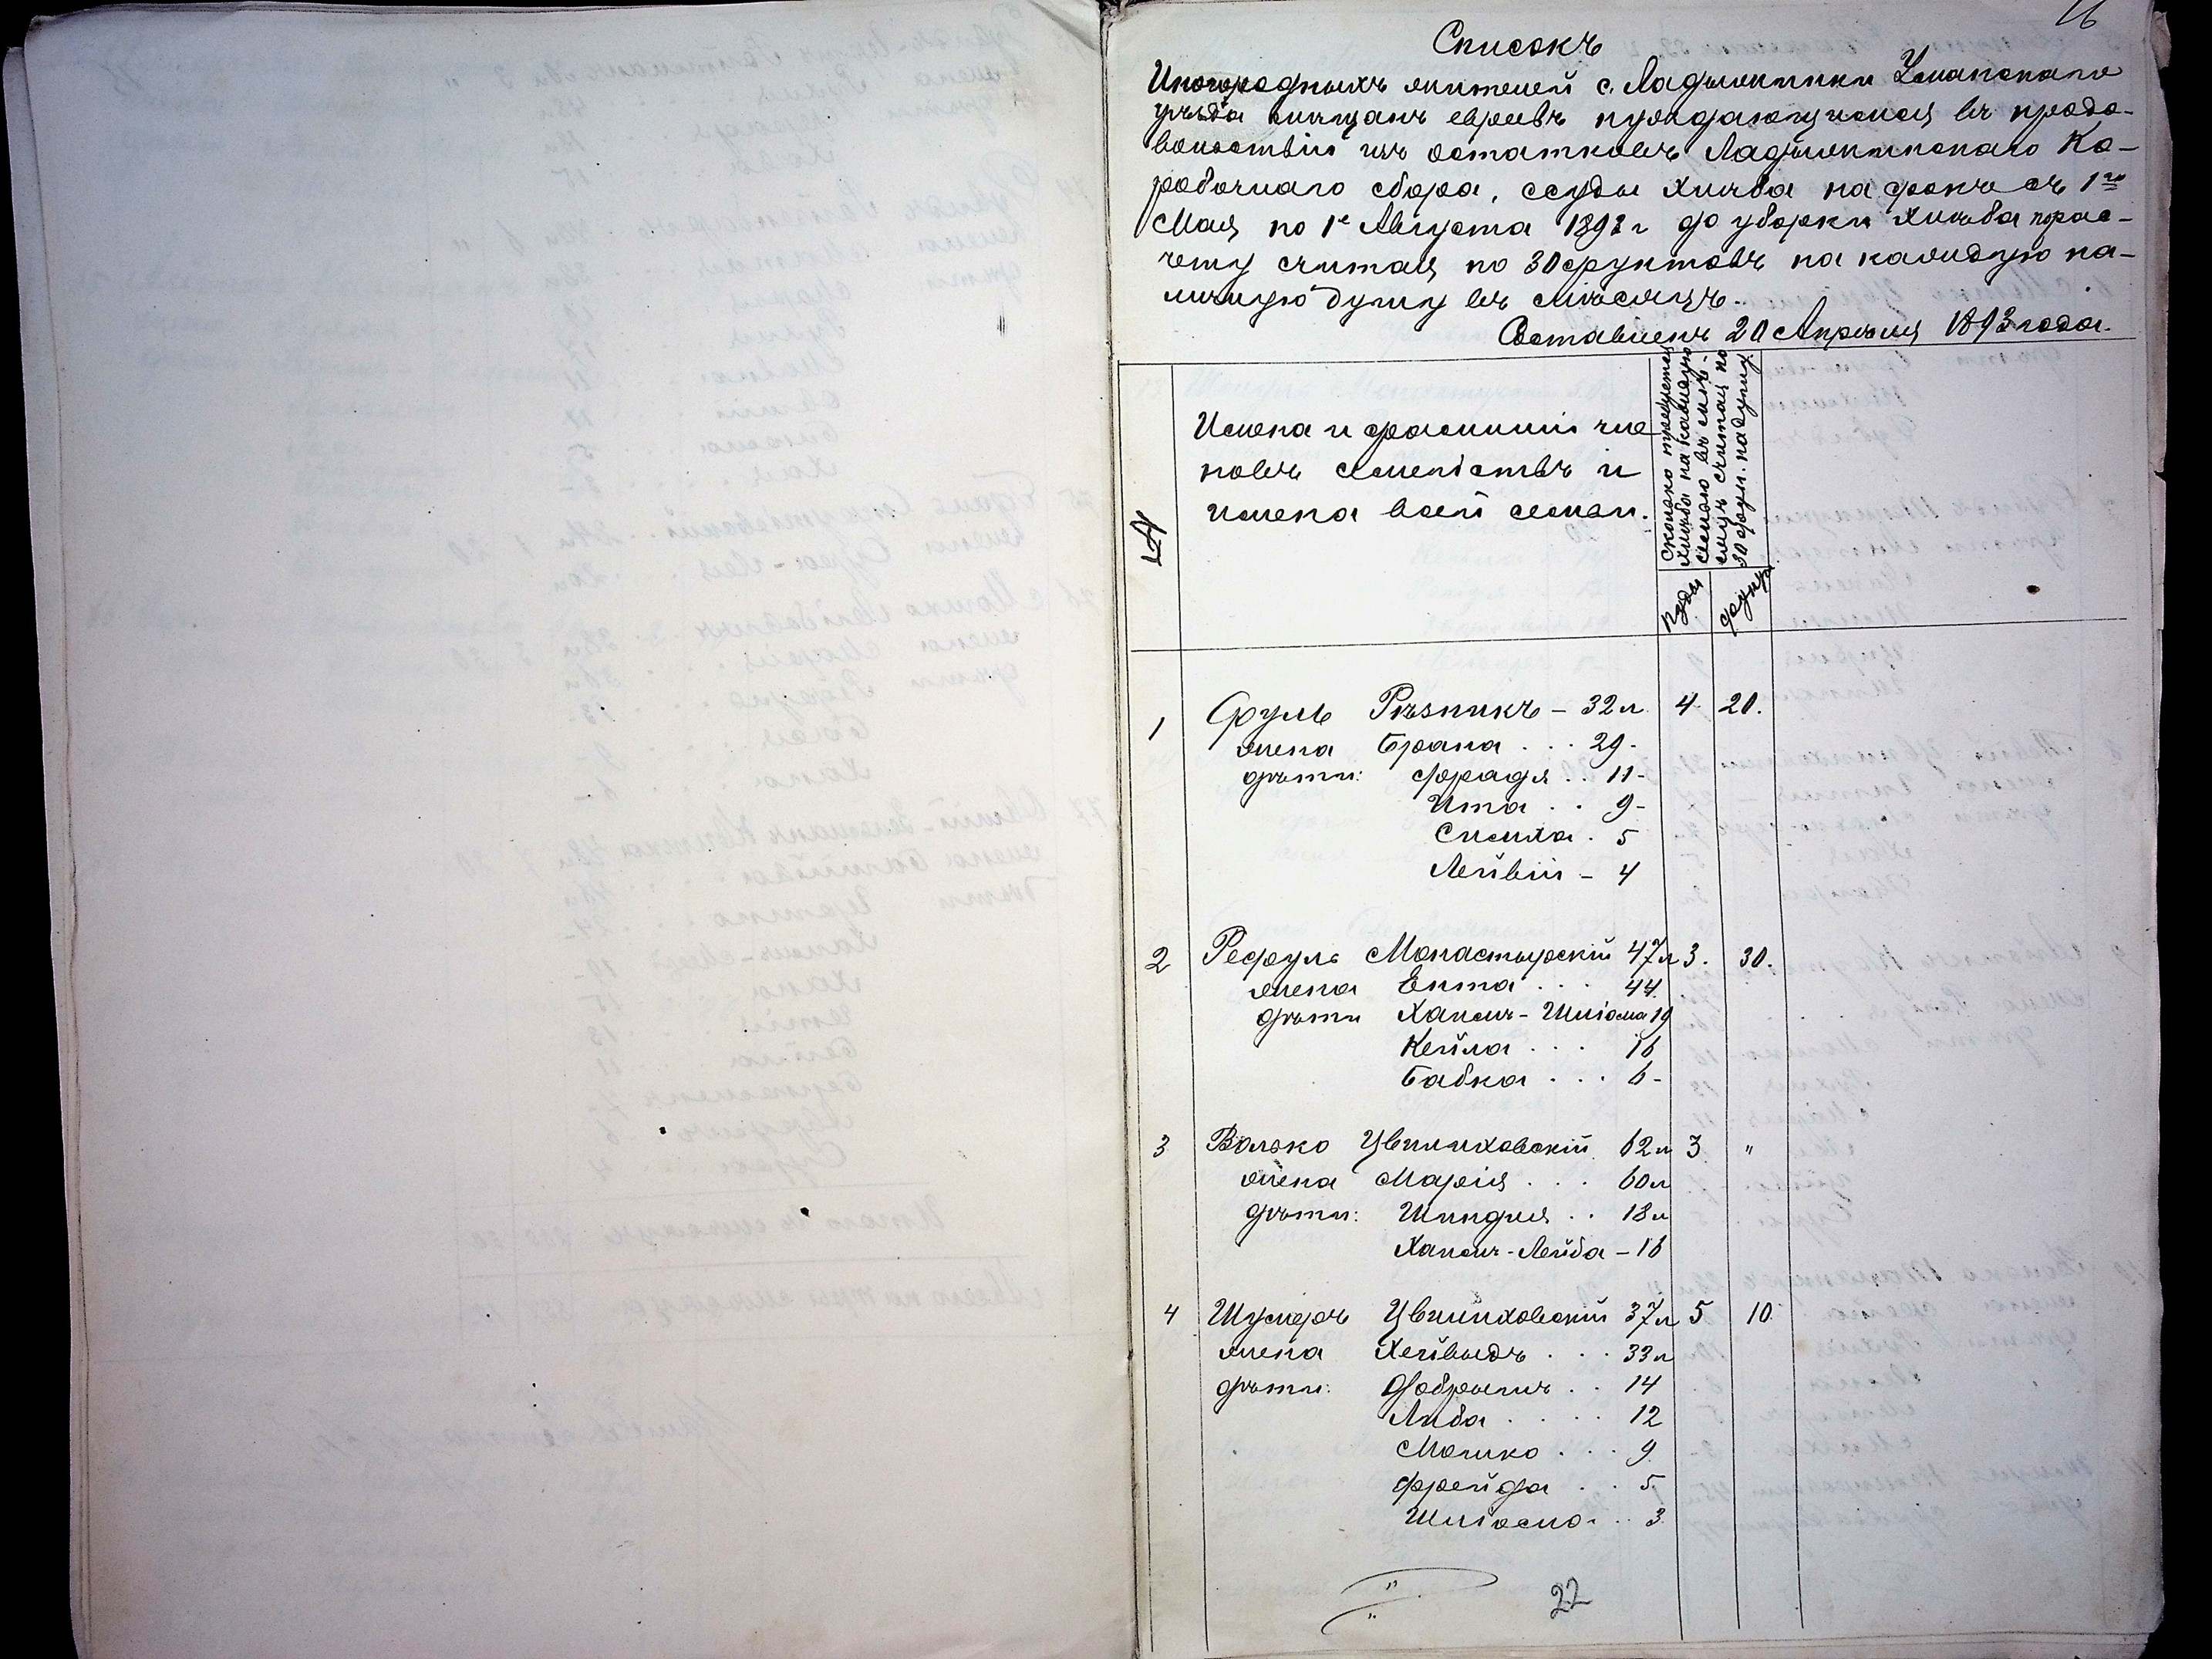 16
Списокъ
Иногородныхъ жителей с. Ладыжинки Уманскаго
уѣзда мѣщанъ евреевъ нуждающихся въ продо-
вольствіи изъ остатковъ Ладыжинскаго Ко-
робочнаго сбора, ссуды хлѣба на срокъ съ 1го
Мая по 1е Августа 1893 г до уборки хлѣба
считая по 30 фунтовъ на каждую на-
личную душу въ мѣсяцъ.
Составленъ 20 Апрѣля 1893 года.
№
Имена и фамиліи чле
новъ семействъ и
имена всей семьи.
Сколько требуется
хлѣба на каждую
семью въ мѣс-
яцъ считая по
30 фун. на душу.
пуды
фунты
1 Сруль Рѣзникъ – 32 л. 4. 20.
жена Брана . . . 29 -
дѣти: Фрадя . . 11 -
Ита . . 9 -
Симха . 5
Лейвій – 4
2 Рефулъ Монастырскій 47 л 3. 30.
жена Ента . . . 44.
дѣти Хаимъ - Шліома 19
Кейла . . . 16
Бабка . . . 6 -
3 Волько Цвилиховскій 62 л 3 "
жена Марія . . . 60 л
дѣти: Шиндля . . 18 л
Хаимъ - Лейба – 16
4 Шулеръ Цвилиховскій 37 л 5 10.
жена . . . 33 л
дѣти: Добрышъ . . 14
Либа . . . . 12
Мошко . . . 9.
Фрейда . . 5.
Шліома . . 3.
22